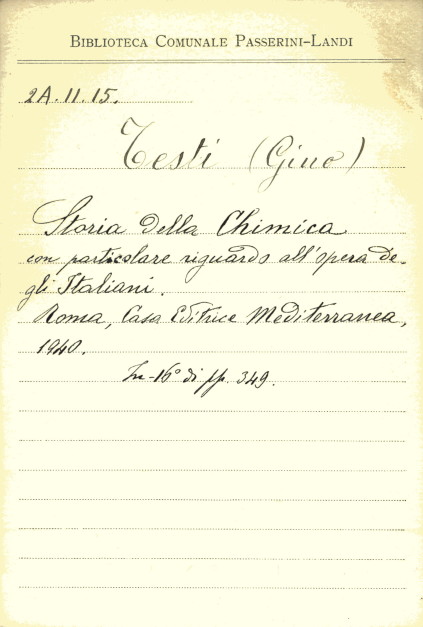 BIBLIOTECA COMUNALE PASSERINI-LANDI
2A.11.15.
Testi (Gino)
Storia della Chimica
con particolare riguardo all'opera de-
gli Italiani.
Roma, Casa Editrice Mediterranea,
1940.
In-16° di pp. 349.